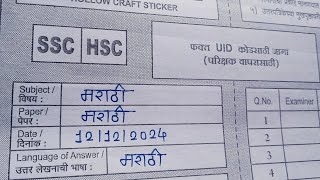 HOLLOW CRAFT STICKER
SSC HSC
फक्त UID कोडसाठी जागा
(परिक्षक वापरासाठी)
Subject / विषय : मराठी
Paper / पेपर : मराठी
Date / दिनांक : 12/12/2024
Language of Answer / उत्तर लेखनाची भाषा : मराठी
Q.No. Examiner
1
2
3
4